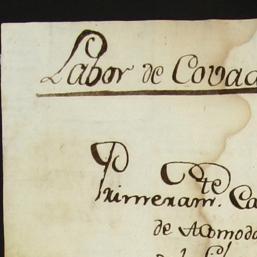 Labor de Covad
Primeram.te Ca
de Acomoda